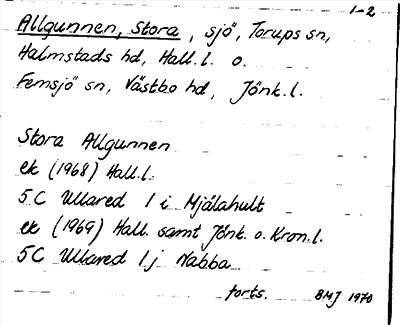 1-2
Allgunnen, Stora, sjö, Torups sn,
Halmstads hd, Hall. l. o.
Femsjö sn, Västbo hd, Jönk. l.
Stora Allgunnen
ek (1968) Hall. l.
5 C Ullared 1 i Mjälahult
ek (1969) Hall. samt Jönk. o. Kron. l.
5C Ullared 1 j Nabba
forts. BMJ 1970